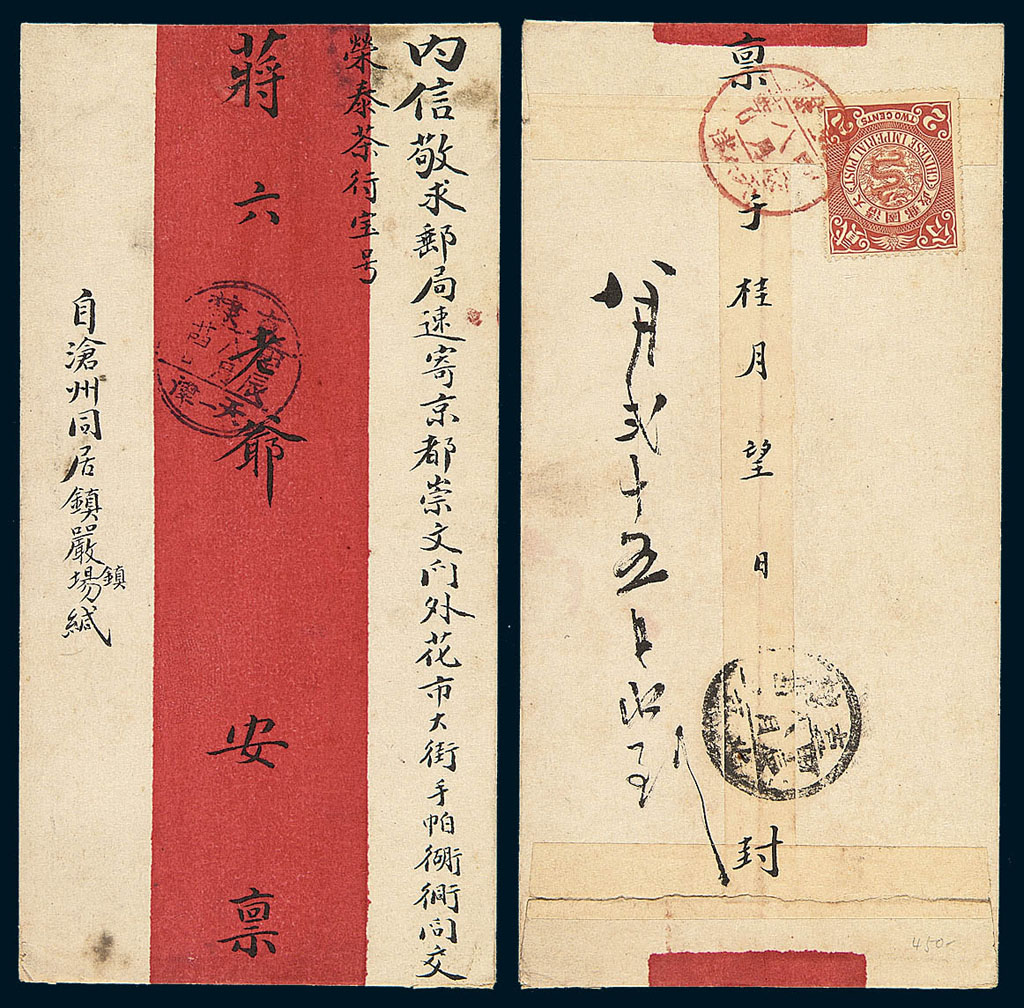 内信敬求郵局速寄京都崇文门外花市大街手帕衚衕向交
榮泰茶行宝号
蔣六老爺安禀
自滄州同居鎮嚴場緘
鎮
禀
手桂月望日
封
八月弍十五日收到
CHINESE IMPERIAL POST
TWO CENTS
大清國郵政
貳分
2
2
450-